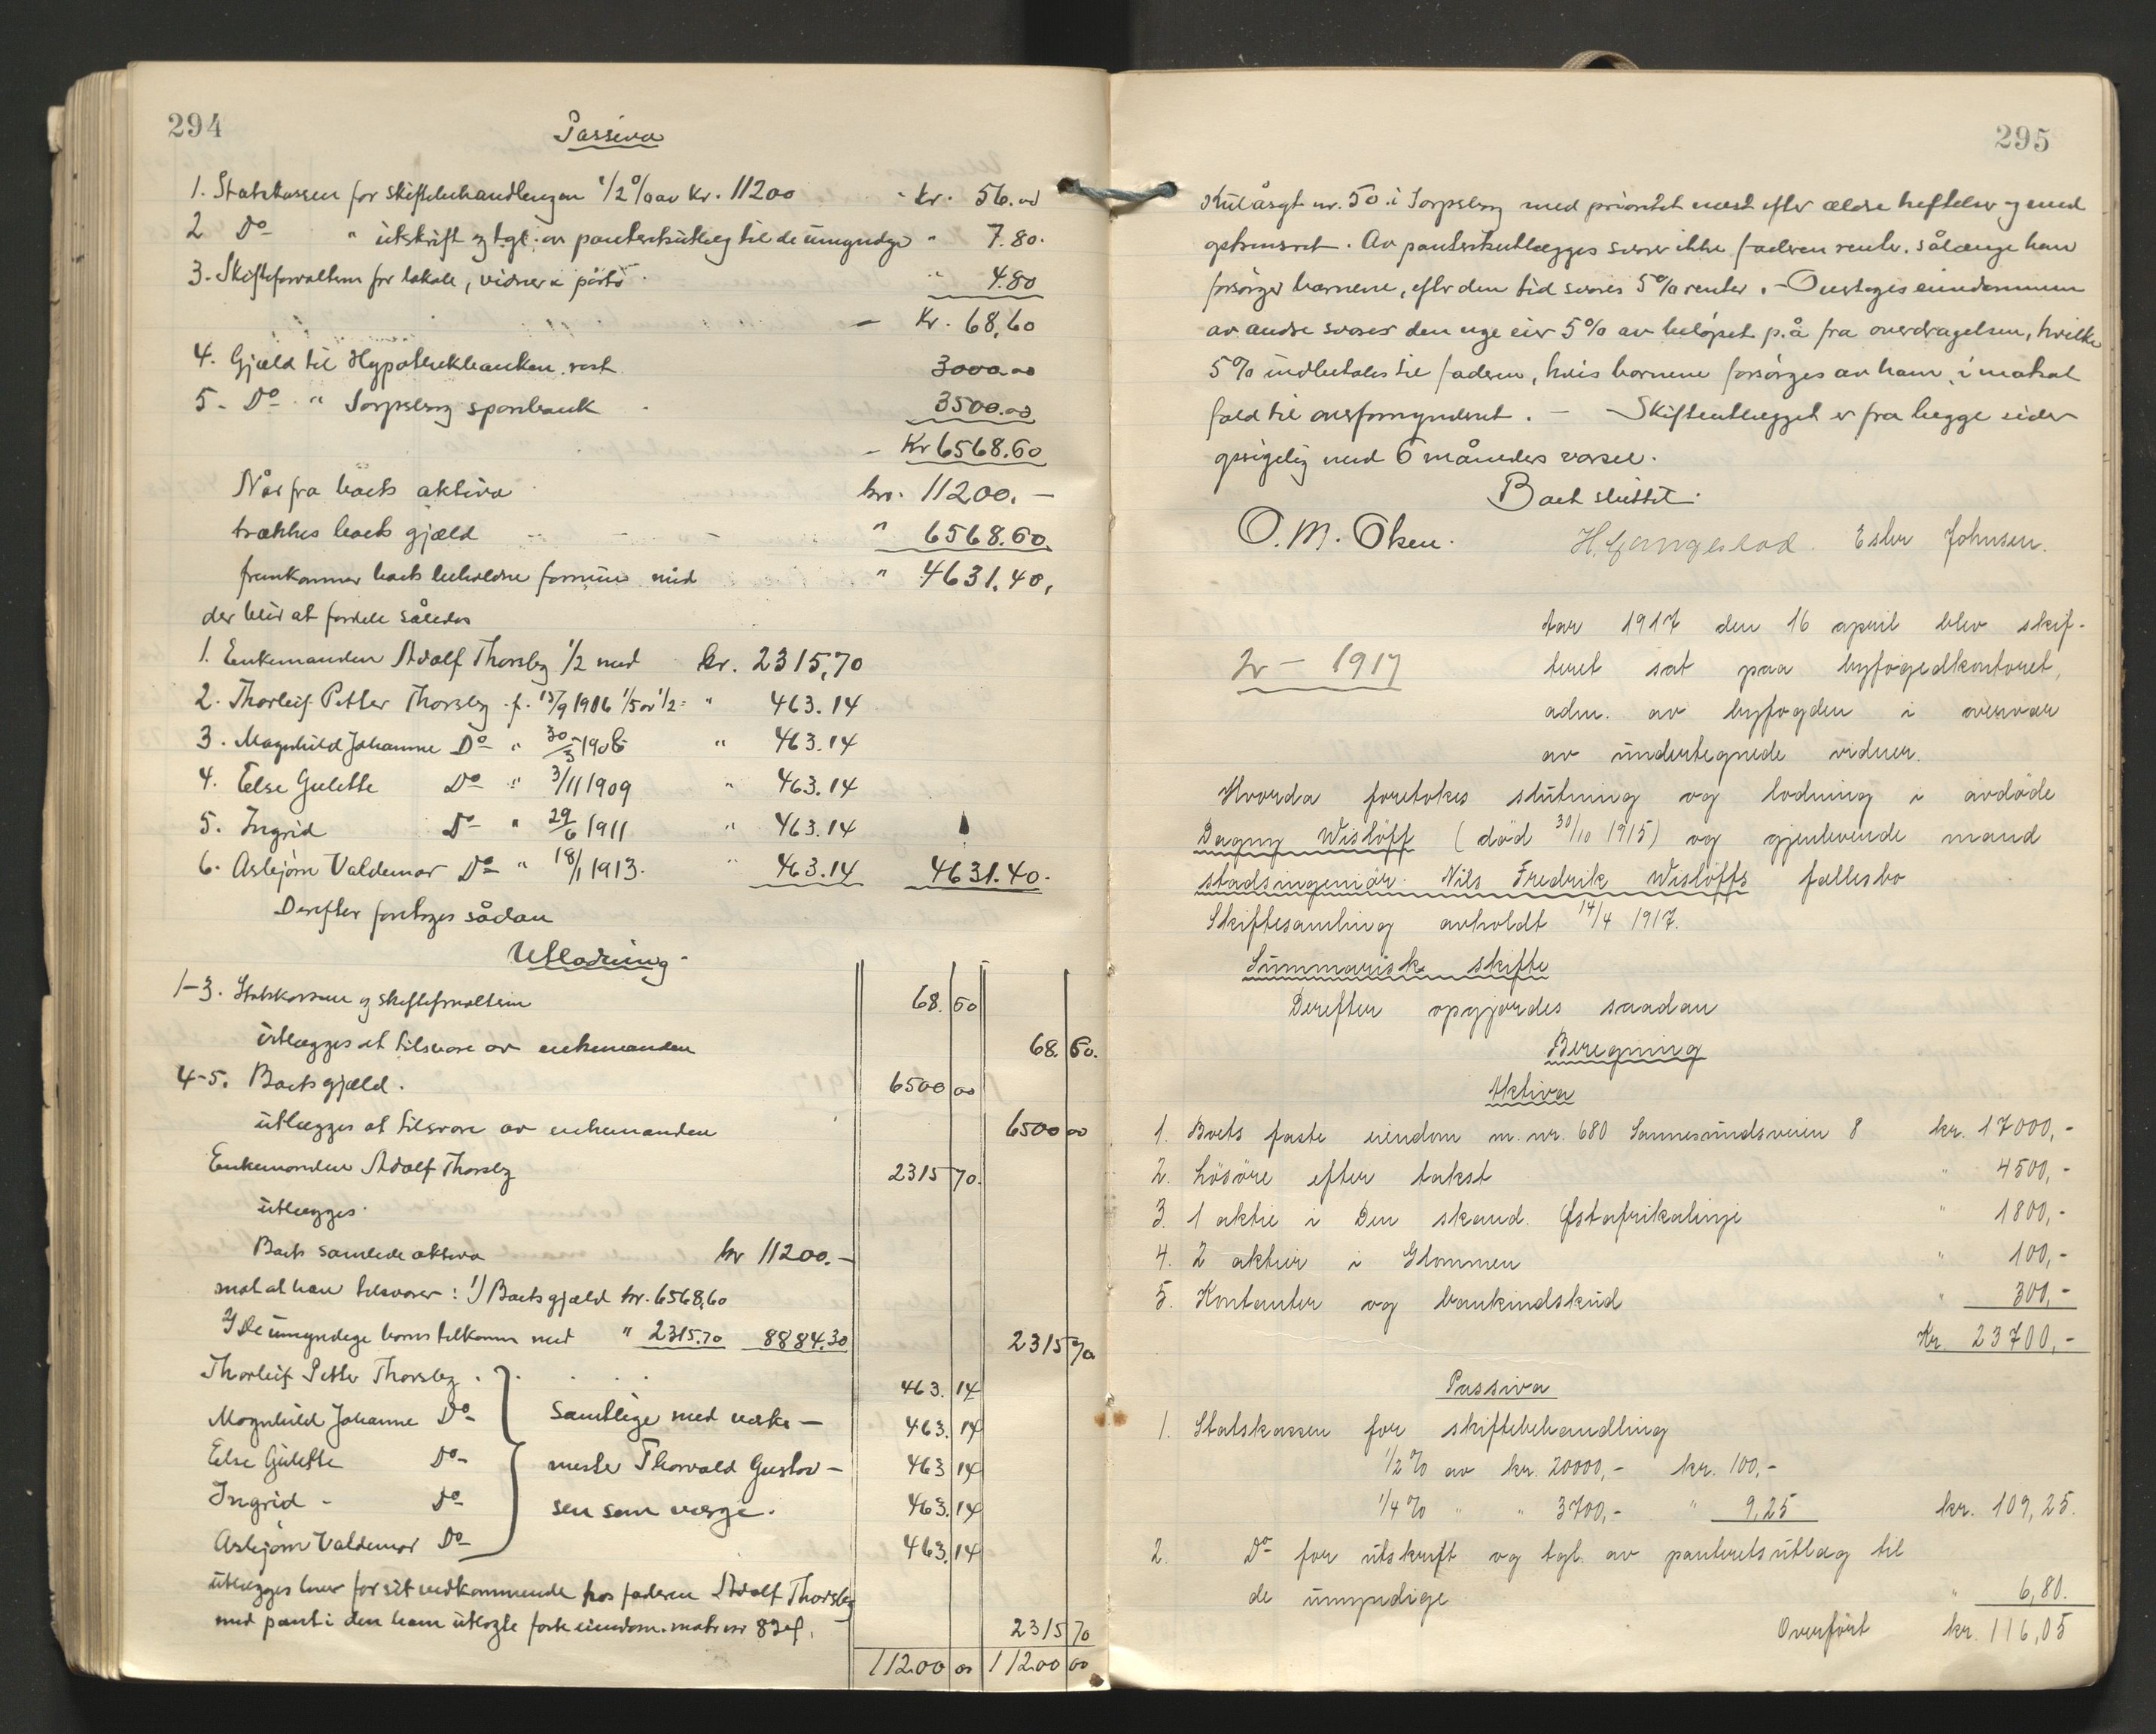 294
Passiva
1. Statskassen for skiftebehandlingen 1/2 % av kr. 11200 - kr. 56.00
2 Do " utskrift og tgl. av panteretsutlæg til de umyndige " 7.80.
3. Skifteforvalteren for lokale, vidner & porto " 4.80
- Kr. 68,60
4. Gjæld til Hypothekbanken rest 3000.00
5. Do " Sarpsborg sparebank 3500.00
- Kr 6568.60
Når fra boets aktiva kr. 11200. -
trækkes boets gjæld " 6568.60
fremkommer boets beholdne formue med " 4631.40,
der blir at fordele således
1. Enkemanden Adolf Thorsby 1/2 med kr. 2315,70
2. Thorleif Petter Thorsby f. 13/9 1906 1/5 av 1/2 = " 463.14
3. Magnhild Johanne Do " 30/3 1908 " 463.14
4. Else Gulette Do " 3/11 1909 " 463.14
5. Ingrid Do " 29/6 1911 " 463.14
6. Asbjørn Valdemar Do " 18/1 1913. " 463.14 4631.40.
Derefter foretoges sådan
Utlodning
1-3. Statskassen og skifteforvalteren 68. 60
utlægges at tilsvare av enkemanden 68. 60.
4-5. Boets gjæld. 6500 00
utlægges at tilsvare av enkemanden 6500 00
Enkemanden Adolf Thorsby 2315 70.
utlægges
Boets samlede aktiva kr 11200. -
mot at han tilsvarer: 1) Boets gjæld kr. 6568,60
2) De umyndige barns tilkomm med " 2315.70 8884.30 2315 70
Thorleif Petter Thorsby . 463. 14
Magnhild Johanne Do Samtlige med verks- 463. 14
Else Gulette Do mester Thorvald Gustav- 463 14
Ingrid - Do sen som verge. 463. 14
Asbjørn Valdemar Do 463. 14
utlægges hver for sit vedkommende hos faderen Adolf Thorsby
med pant i den ham utlagte faste eiendom. matr nr 82 f. 2315 70
11200 00 11200 00
295
Kulåsgt nr. 50 i Sarpsborg med prioritet næst efter ældre heftelser og med
. Av panteretsutlægges svarer ikke faderen renter, sålænge han
forsørger barnene, efter den tid svares 5% renter. - Overtages eiendommen
av andre svarer den nye eier 5% av beløpet p.å fra overdragelsen, hvilke
5% indbetales til faderen, hvis barnene forsørges av ham, i motsat
fald til overformynderiet. - Skifteutlægget er fra begge sider
opsigelig med 6 måneders varsel.
Boet sluttet.
O. M. Olsen. H. Gangestad. Ester Johnsen.
2 - 1917
Aar 1917 den 16 april blev skif-
teret sat paa byfogedkontoret,
adm. av byfogden i overvær
av undertegnede vidner.
Hvorda foretokes slutning og lodning i avdøde
Dagny Wisløff (død 30/10 1915) og gjenlevende mand
stadsingeniør Nils Fredrik Wisløffs fællesbo
Skiftesamling avholdt 14/4 1917.
Summarisk skifte
Derefter opgjordes saadan
Beregning
Aktiva
1. Boets faste eiendom m. nr. 680 Sannesundsveien 8 kr. 17000,-
2. Løsøre efter takst " 4500,-
3. 1 aktie i Den skand. Østafrikalinje " 1800,-
4. 2 aktier i Glommen " 100,-
5. Kontanter og bankindskud " 300,-
Kr. 23700,-
Passiva
1. Statskassen for skiftebehandling
1/2 % av kr. 20000,- kr. 100,-
1/4 % " " 3700,- " 9,25 kr. 109,25.
2. Do for utskrift og tgl. av panteretsutlæg til
de umyndige " 6,80.
Overført kr. 116,05